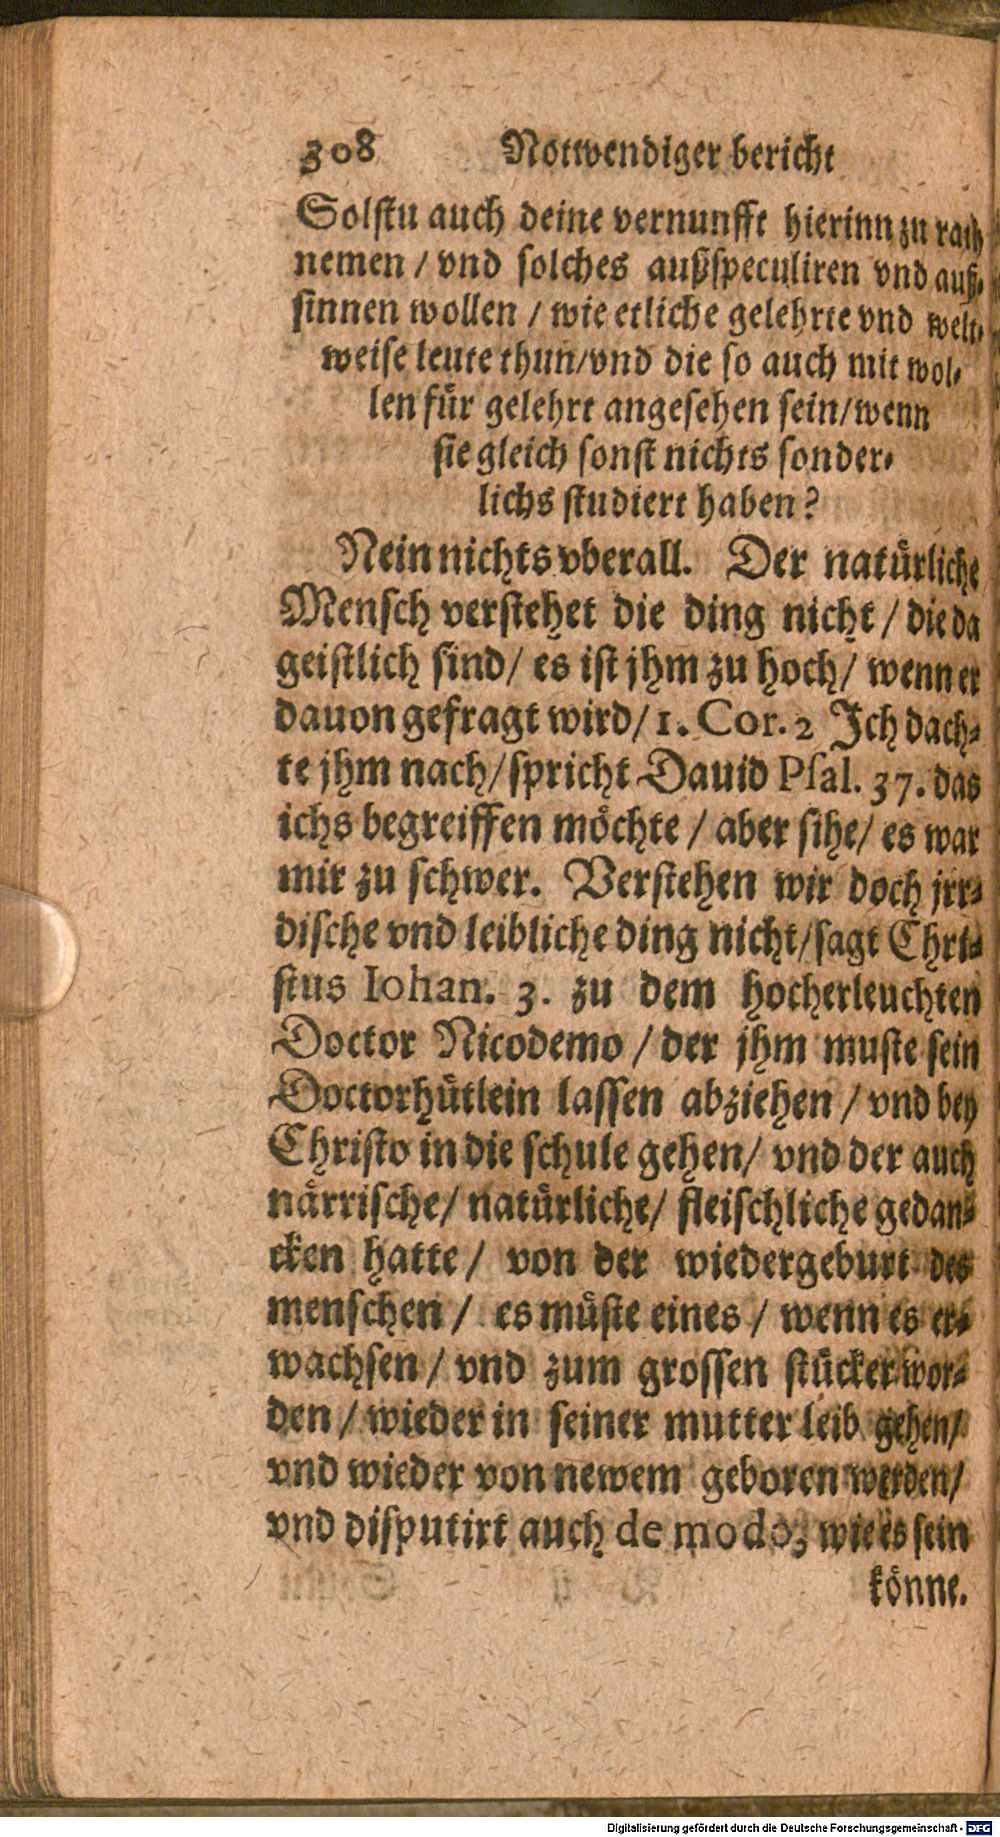 308 Notwendiger bericht
Solstu auch deine vernunfft hierinn zu rath
nemen / vnd solches außspeculiren vnd auß-
sinnen wollen / wie etliche gelehrte vnd welt-
weise leute thun/vnd die so auch mit wol-
len für gelehrt angesehen sein/wenn
sie gleich sonst nichts sonder-
lichs studiert haben?
Nein nichts vberall. Der natürliche
Mensch verstehet die ding nicht / die da
geistlich sind/ es ist jhm zu hoch/ wenn er
dauon gefragt wird/1. Cor. 2 Jch dach-
te jhm nach/spricht Dauid Psal. 37. das
ichs begreiffen möchte / aber sihe/ es war
mir zu schwer. Verstehen wir doch jrr-
dische vnd leibliche ding nicht/sagt Chri-
stus Iohan. 3. zu dem hocherleuchten
Doctor Nicodemo / der jhm muste sein
Doctorhütlein lassen abziehen / vnd bey
Christo in die schule gehen/ vnd der auch
närrische/ natürliche/ fleischliche gedan-
cken hatte / von der wiedergeburt des
menschen / es müste eines / wenn es er-
wachsen / vnd zum grossen stücker wor-
den / wieder in seiner mutter leib gehen/
vnd wieder von newem geboren werden/
vnd disputirt auch de modo, wie es sein
könne.
Digitalisierung gefördert durch die Deutsche Forschungsgemeinschaft - DFG